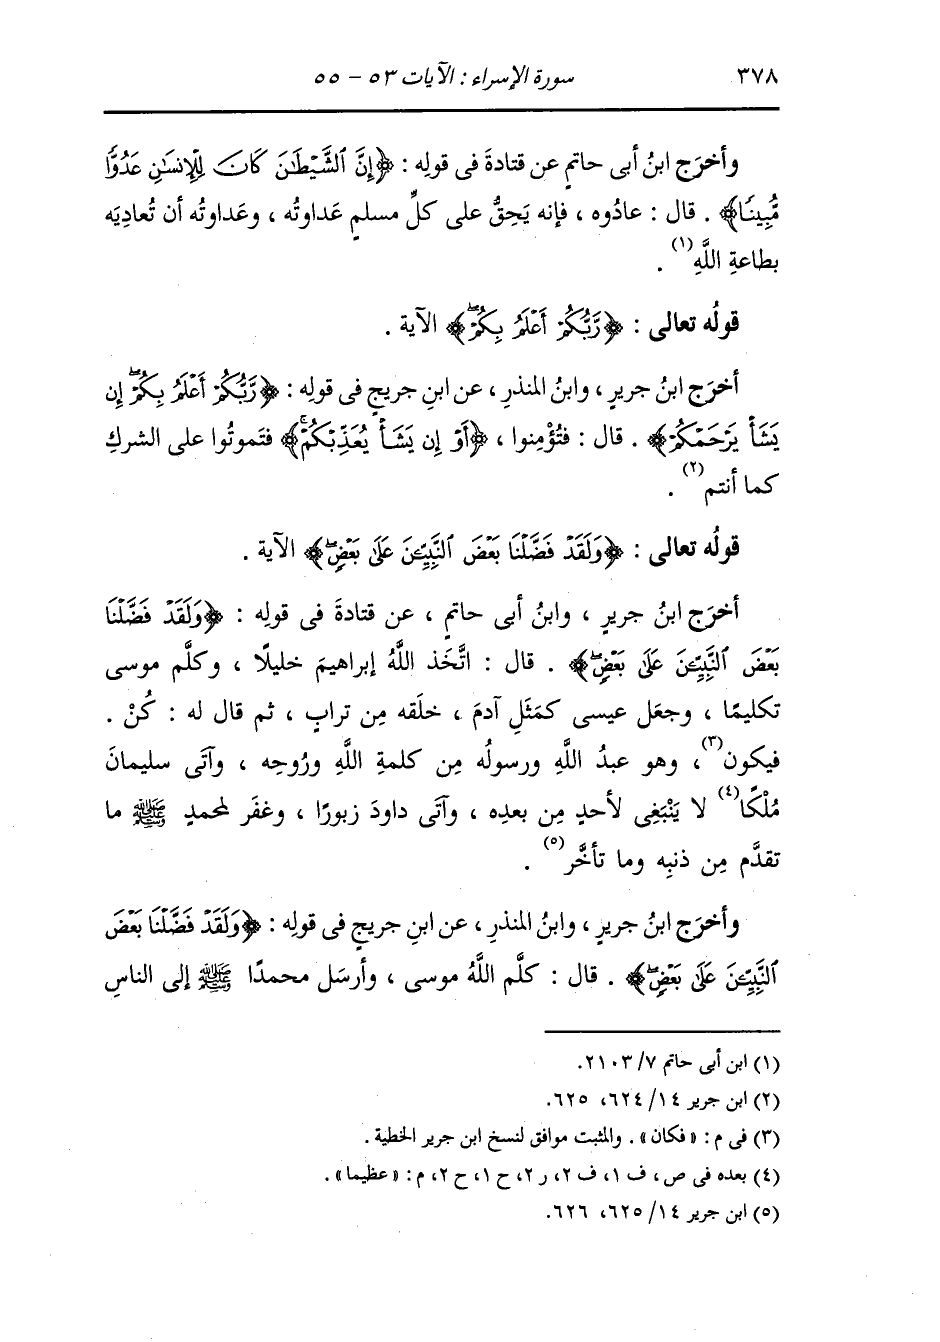 ٣٧٨ سورة الإسراء : الآيات ٥٣ - ٥٥
وأخرَج ابنُ أبى حاتمٍ عن قتادةَ فى قولِه : ﴿إِنَّ ٱلشَّيْطَٰنَ كَانَ لِلْإِنسَٰنِ عَدُوًّا
مُّبِينًا﴾ . قال : عادُوه ، فإنه يَحِقُّ على كلِّ مسلمٍ عَداوتُه ، وعَداوتُه أن تُعادِيَه
بطاعةِ اللَّهِ(١) .
قولُه تعالى : ﴿رَّبُّكُمْ أَعْلَمُ بِكُمْۖ﴾ الآية .
أخرَج ابنُ جريرٍ ، وابنُ المنذرِ ، عن ابنِ جريجٍ فى قولِه : ﴿رَّبُّكُمْ أَعْلَمُ بِكُمْۖ إِن
يَشَأْ يَرْحَمْكُمْ﴾ . قال : فتُؤْمِنوا ، ﴿أَوْ إِن يَشَأْ يُعَذِّبْكُمْۚ﴾ فتَموتُوا على الشركِ
كما أنتم(٢) .
قولُه تعالى : ﴿وَلَقَدْ فَضَّلْنَا بَعْضَ ٱلنَّبِيِّـۧنَ عَلَىٰ بَعْضٍۖ﴾ الآية .
أخرَج ابنُ جريرٍ ، وابنُ أبى حاتمٍ ، عن قتادةَ فى قولِه : ﴿وَلَقَدْ فَضَّلْنَا
بَعْضَ ٱلنَّبِيِّـۧنَ عَلَىٰ بَعْضٍۖ﴾ . قال : اتَّخَذ اللَّهُ إبراهيمَ خليلًا ، وكلَّم موسى
تكليمًا ، وجعَل عيسى كمَثَلِ آدمَ ، خلَقه مِن ترابٍ ، ثم قال له : كُنْ .
فيكون(٣)، وهو عبدُ اللَّهِ ورسولُه مِن كلمةِ اللَّهِ ورُوحِه ، وآتَى سليمانَ
مُلْكًا(٤) لا يَنْبَغِى لأحدٍ مِن بعدِه ، وآتَى داودَ زبورًا ، وغفَر لمحمدٍ ﷺ ما
تقدَّم مِن ذنبِه وما تأخَّر(٥) .
وأخرَج ابنُ جريرٍ ، وابنُ المنذرِ ، عن ابنِ جريجٍ فى قولِه : ﴿وَلَقَدْ فَضَّلْنَا بَعْضَ
ٱلنَّبِيِّـۧنَ عَلَىٰ بَعْضٍۖ﴾ . قال : كلَّم اللَّهُ موسى ، وأرسَل محمدًا ﷺ إلى الناسِ
(١) ابن أبى حاتم ٧/ ٢١٠٣.
(٢) ابن جرير ١٤/ ٦٢٤، ٦٢٥.
(٣) فى م : « فكان » . والمثبت موافق لنسخ ابن جرير الخطية .
(٤) بعده فى ص ، ف ١، ف ٢، ر ٢، ح ١، ح ٢، م : « عظيما » .
(٥) ابن جرير ١٤/ ٦٢٥، ٦٢٦.